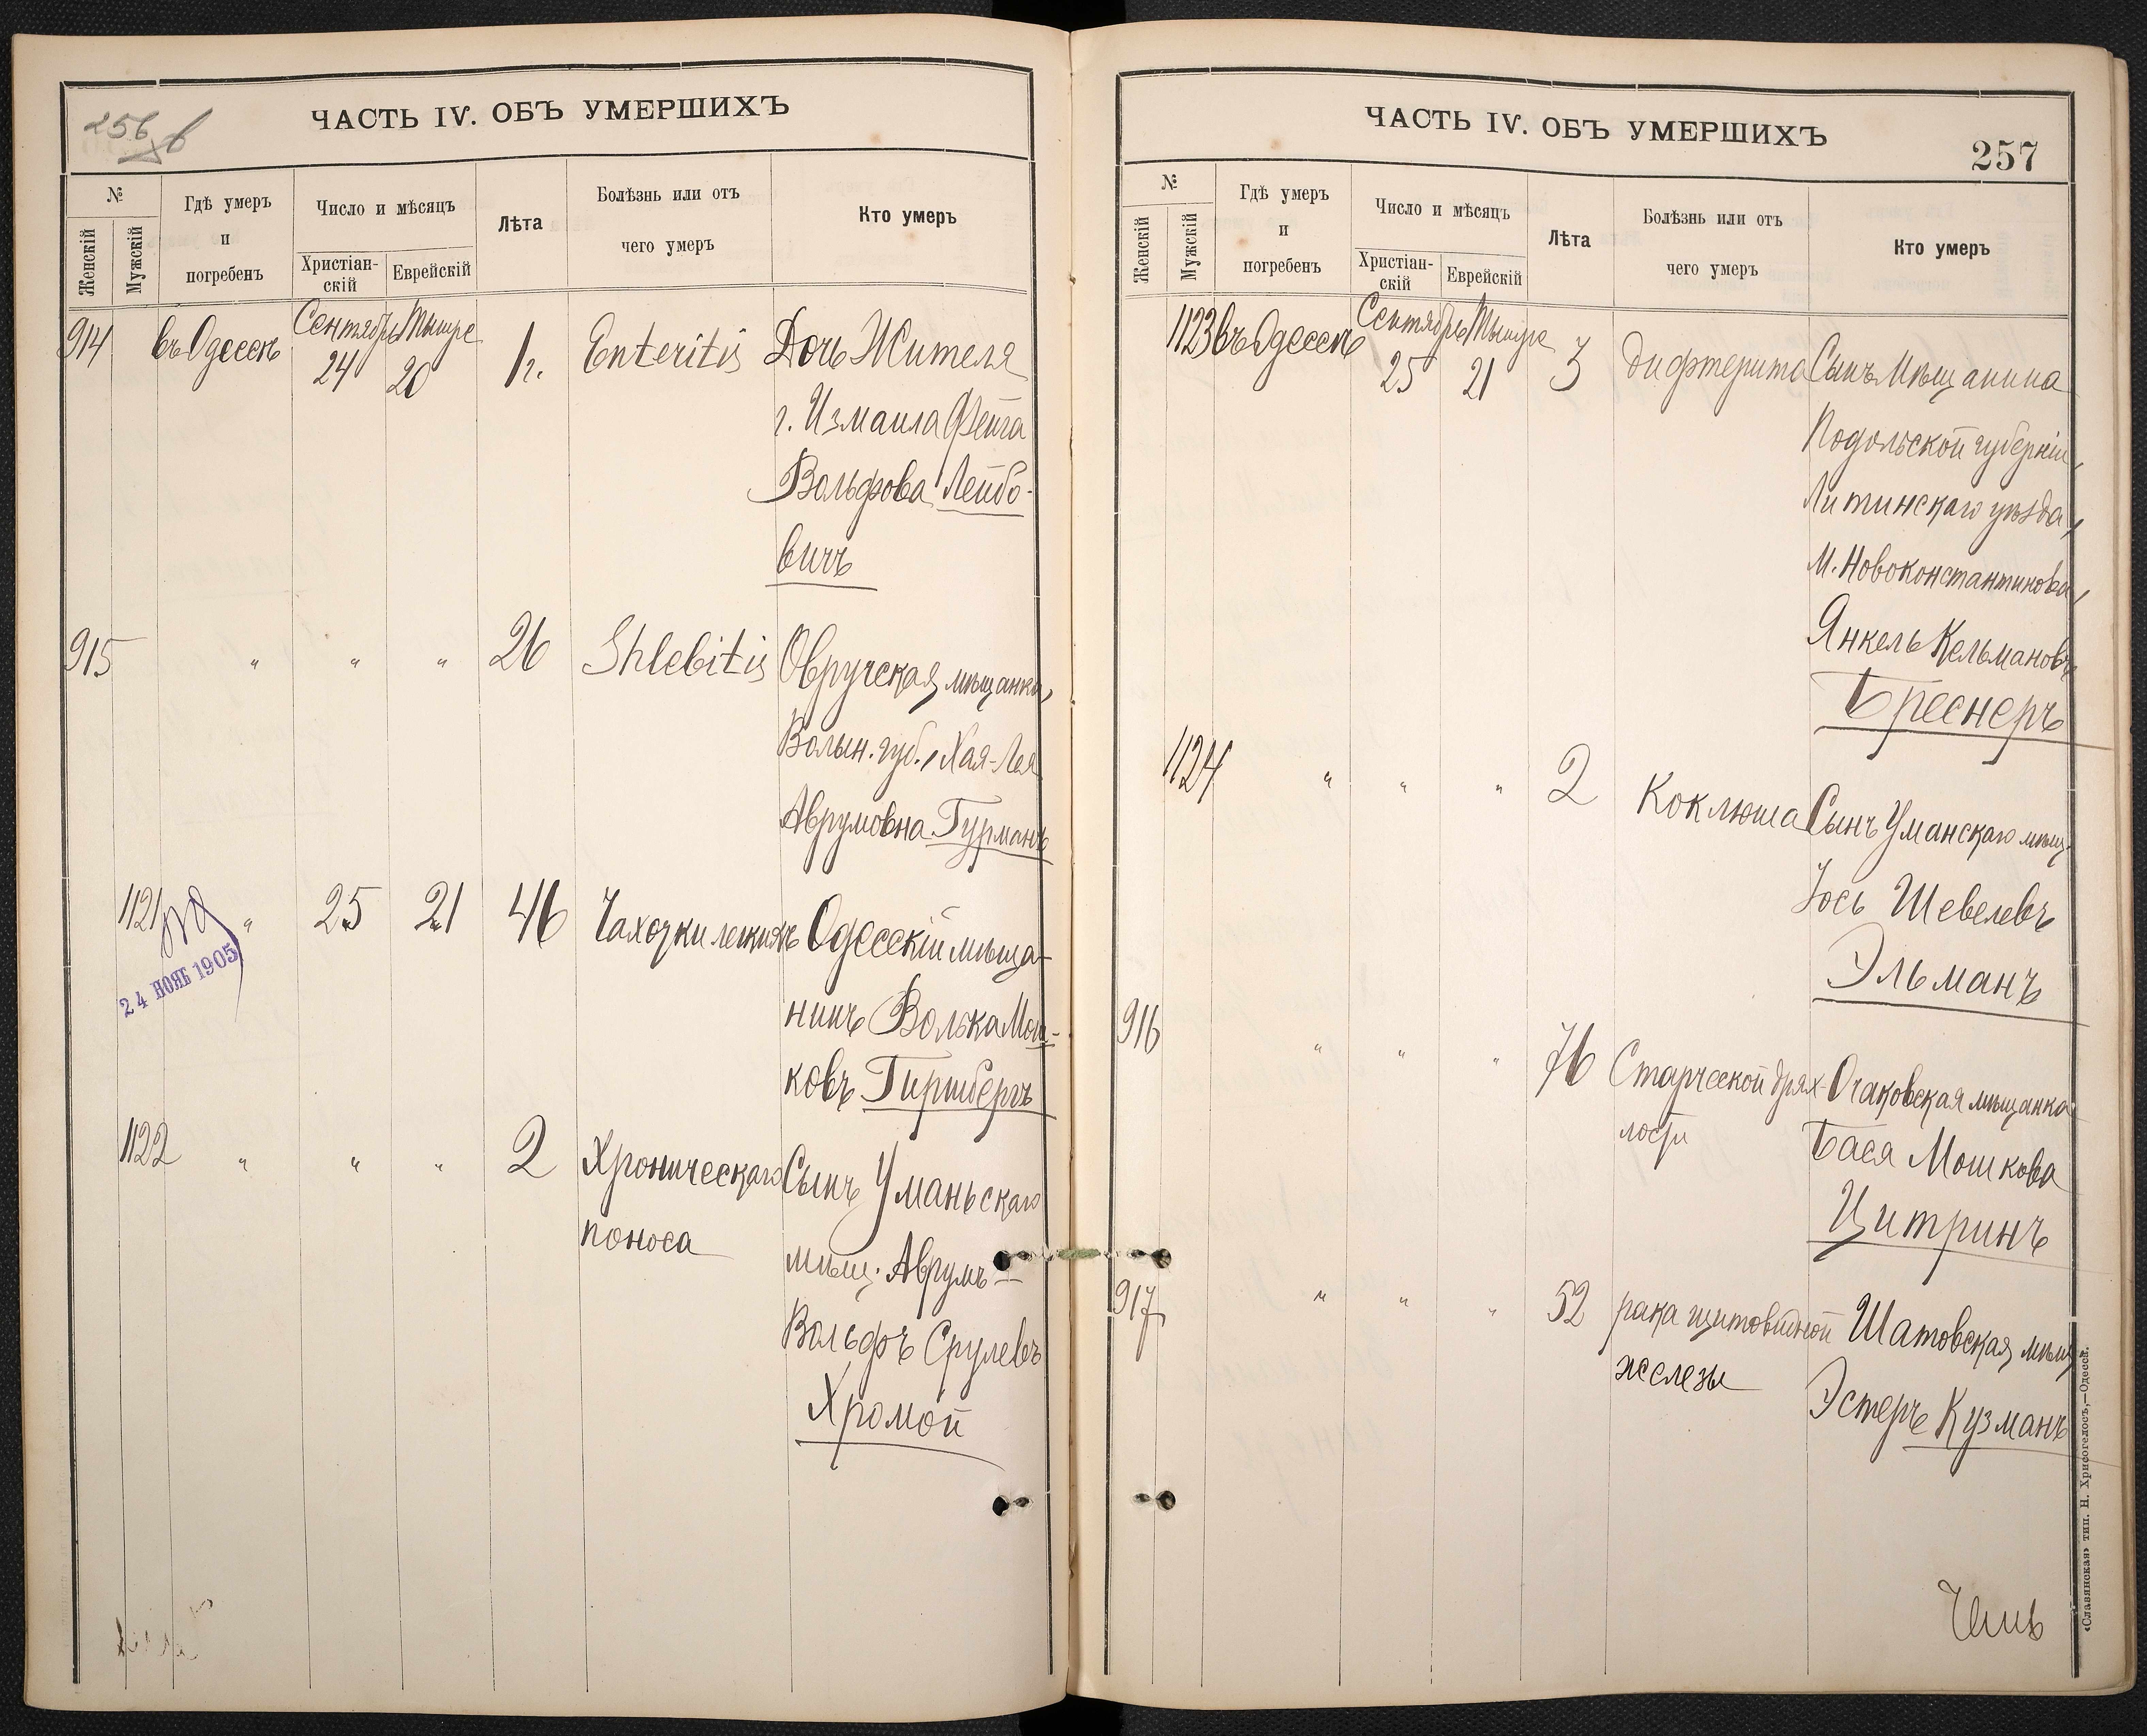 256
ЧАСТЬ IV. ОБЪ УМЕРШИХЪ
№
Женскій
Мужскій
Гдѣ умеръ
и
погребенъ
Число и мѣсяцъ
Христіан-
скій
Еврейскій
Лѣта
Болѣзнь или отъ
чего умеръ
Кто умеръ
914 въ Одессѣ Сентябрь 24 Тышре 20 1 г. Enteritis Дочь Жителя
г. Измаила Фейга
Вольфова Лейбо-
вичъ
915 " " " 26 Phlebitis Овручская мѣщанка,
Волын. губ., Хая-Лея
Аврумовна Гурманъ
1121 " 25 21 46 Чахотки легкихъ Одесскій мѣща-
24 НОЯБ 1905
нинъ Волька Мош-
ковъ Гиршбергъ
1122 " " " 2 Хроническаго Сынъ Уманьскаго
поноса
мѣщ. Аврумъ-
Вольфъ Срулевъ
Хромой
ЧАСТЬ IV. ОБЪ УМЕРШИХЪ
257
№
Женскій
Мужскій
Гдѣ умеръ
и
погребенъ
Число и мѣсяцъ
Христіан-
скій
Еврейскій
Лѣта
Болѣзнь или отъ
чего умеръ
Кто умеръ
1123 въ Одессѣ Сентябрь 25 Тышре 21 3 дифтерита Сынъ Мѣщанина
Подольской губерніи,
Литинскаго уѣзда,
м. Новоконстантинова,
Янкель Кельмановъ
Бреснеръ
1124 " " " 2 Коклюша Сынъ Уманскаго мѣщ.
Іось Шевелевъ
Эльманъ
916 " " " 76 Старческой дрях- Очаковская мѣщанка
лости
Бася Мошкова
Цитринъ
917 " " " 52 рака щитовидной Шатовская мѣщ.
железы
Эстеръ Кузманъ
«Славянская» тип. Н. Хрисогелосъ,—Одесса.